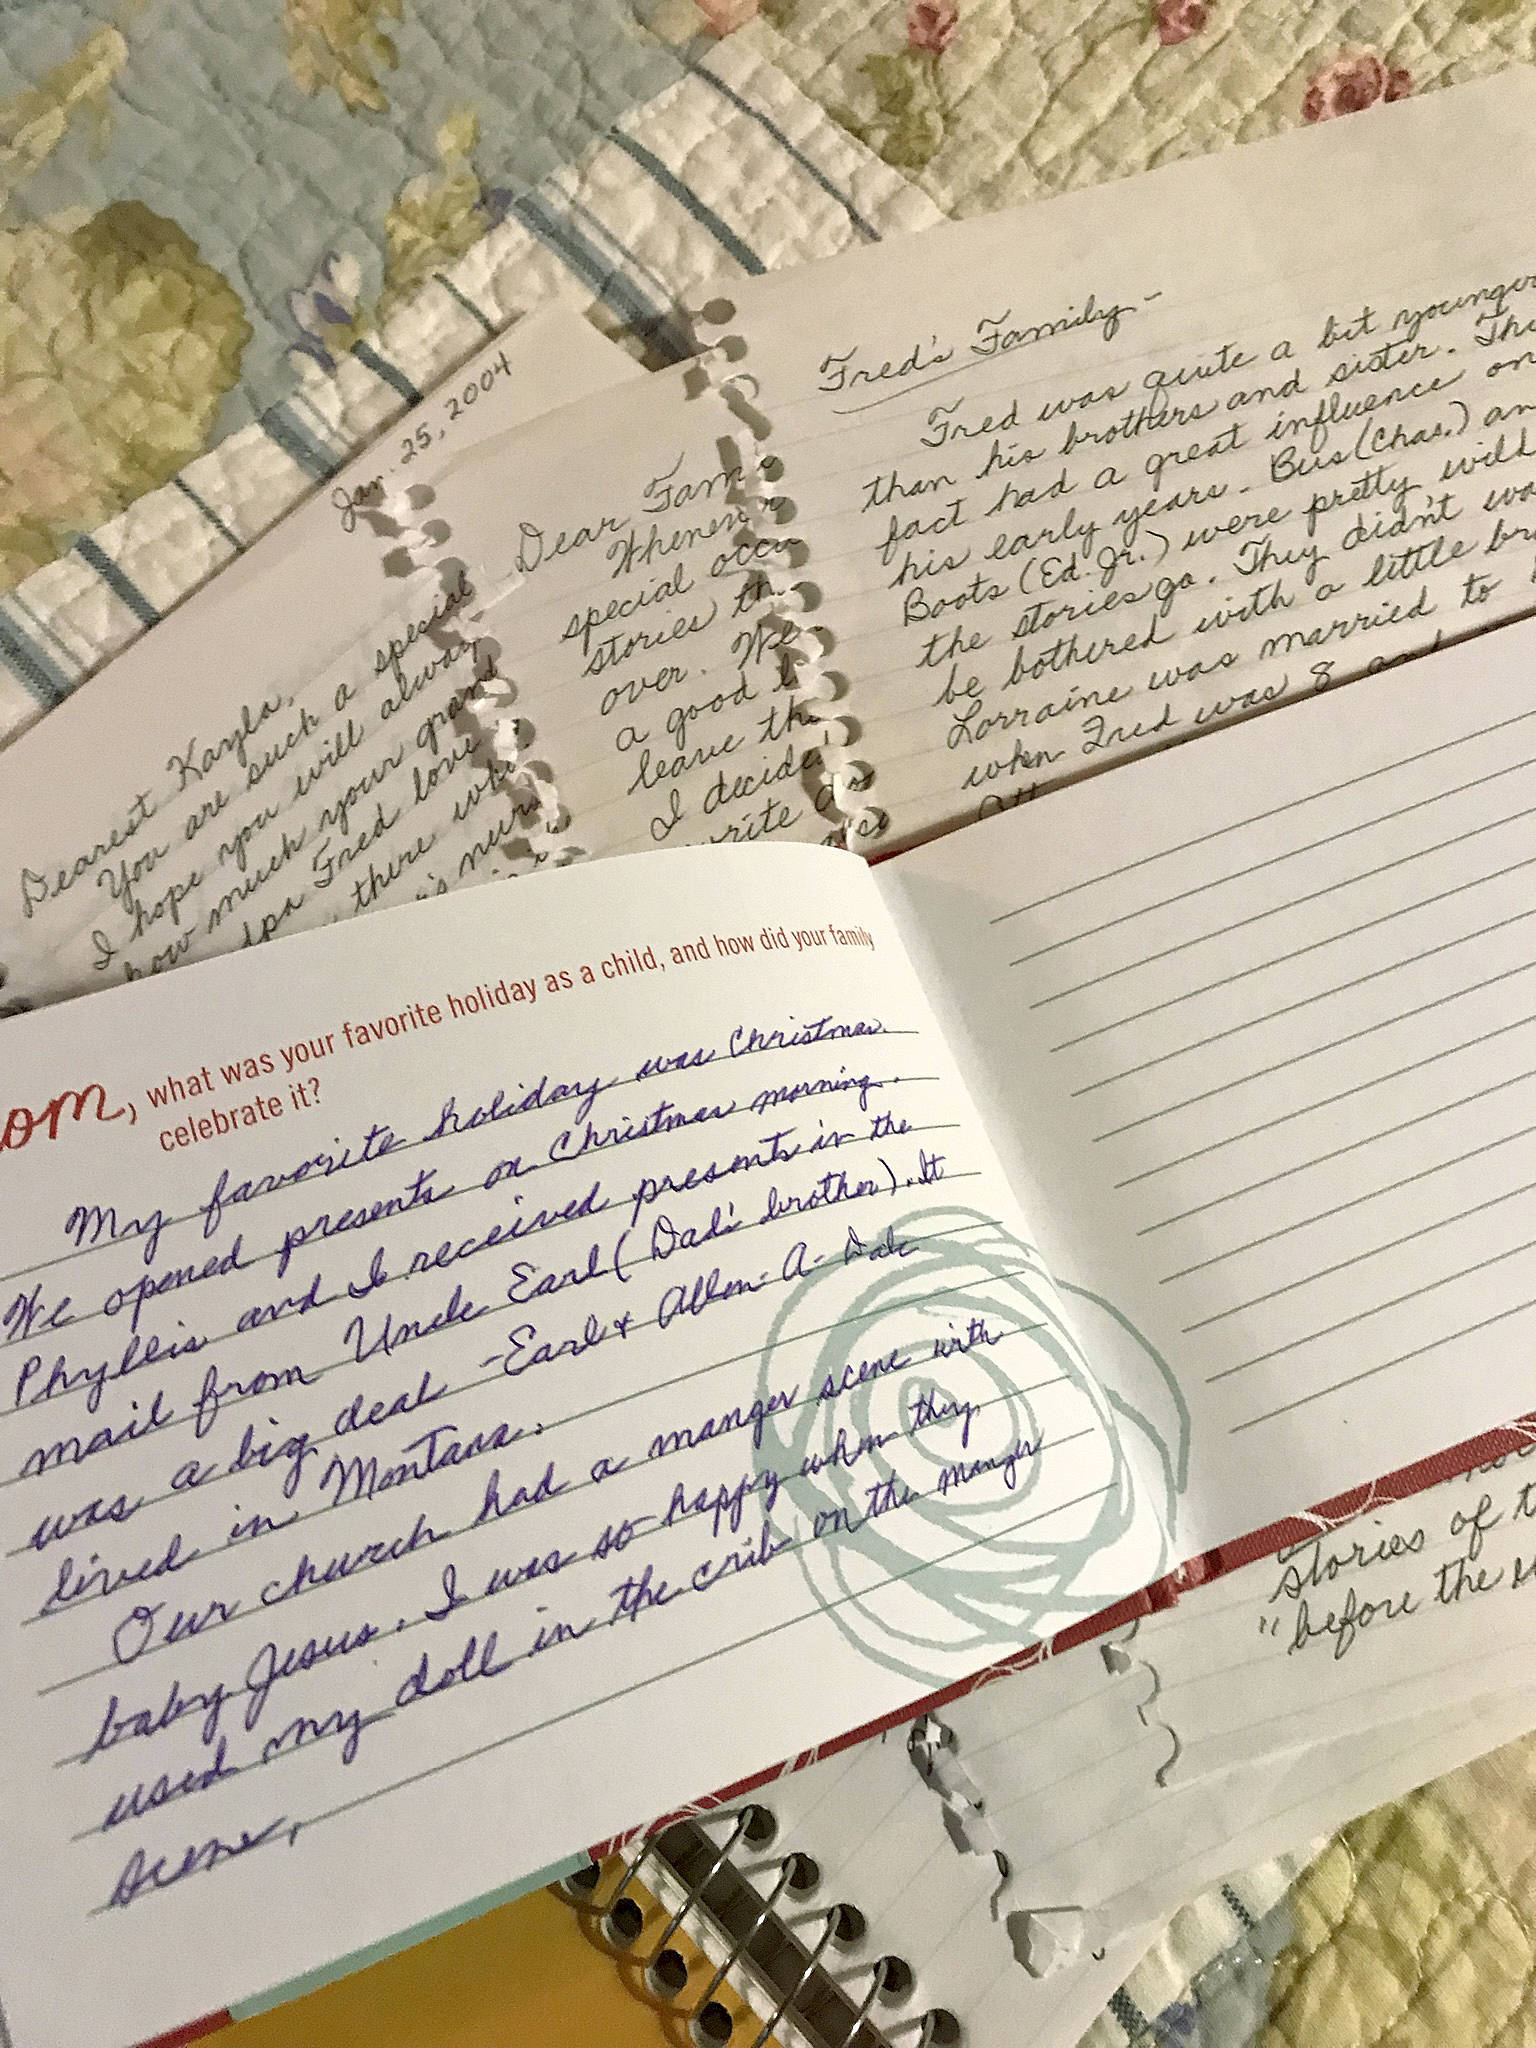 Jan. 25, 2004
Dearest Kayla,
You are such a special
I hope you will always
how much your grand
Fred love
there
Dear Fam
Whenever
special occa
stories th
over. We
a good
leave th
I decide
write
Fred's Family-
Fred was quite a bit younger
than his brothers and sister. The
fact had a great influence on
his early years. Bus (Chas.) an
Boots (Ed. Jr.) were pretty wild
the stories go. They didn't wa
be bothered with a little br
Lorraine was married to
when Fred was 8 and
om, what was your favorite holiday as a child, and how did your family
celebrate it?
My favorite holiday was Christmas.
We opened presents on Christmas morning.
Phyllis and I received presents in the
mail from Uncle Earl (Dad's brother). It
was a big deal - Earl + Allen - A - Dale
lived in Montana.
Our church had a manger scene with
baby Jesus. I was so happy when they
used my doll in the crib on the manger
scene.
stories of t
"before the